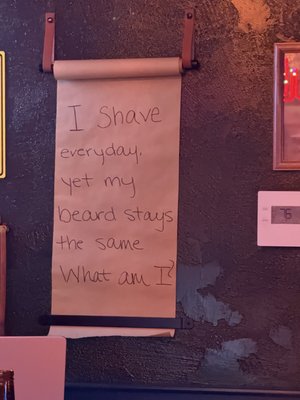 I Shave
everyday,
yet my
beard stays
the same
What am I?
76